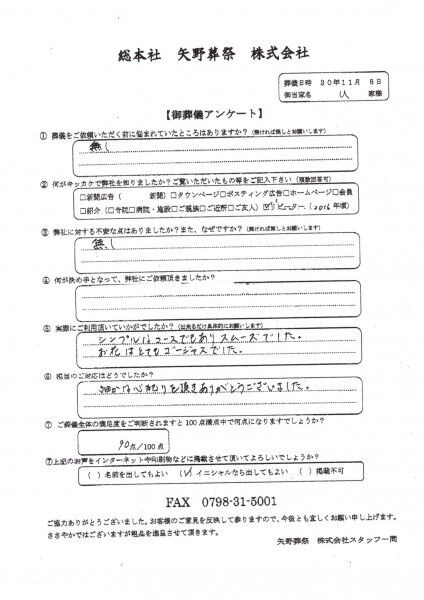 総本社 矢野葬祭 株式会社
葬儀日時 30年11月 8日
御当家名 U 家様
【御葬儀アンケート】
① 葬儀をご依頼いただく前に悩まれていたところはありますか？(無ければ無しとお願いします)
無し
② 何がキッカケで弊社を知りましたか？ご覧いただいたもの等をご記入下さい（複数回答可）
□新聞広告（ 新聞）□タウンページ□ポスティング広告□ホームページ□会員
□紹介（□寺院□病院・施設□ご親族□ご近所□ご友人）☑リピーター（2016年頃）
③ 弊社に対する不安な点はありましたか？また、なぜですか？(無ければ無しとお願いします)
無し
④ 何が決め手となって、弊社にご依頼頂きましたか？
⑤ 実際にご利用頂いていかがでしたか？(出来るだけ具体的にお願いします)
シンプルなコースでもありスムーズでした。
お花はとてもゴージャスでした。
⑥ 担当のご対応はどうでしたか？
細かな心配りを頂きありがとうございました。
⑦ ご葬儀全体の満足度をご判断されますと100点満点中で何点になりますでしょうか？
90点/100点
⑦上記のお声をインターネットや印刷物などに掲載させて頂いてよろしいでしょうか？
（ ）名前を出してもよい （✓）イニシャルなら出してもよい （ ）掲載不可
FAX 0798-31-5001
ご協力ありがとうございました。お客様のご意見を反映して参りますので、今後とも宜しくお願い申し上げます。
ささやかではございますが粗品を進呈させて頂きます。
矢野葬祭 株式会社スタッフ一同